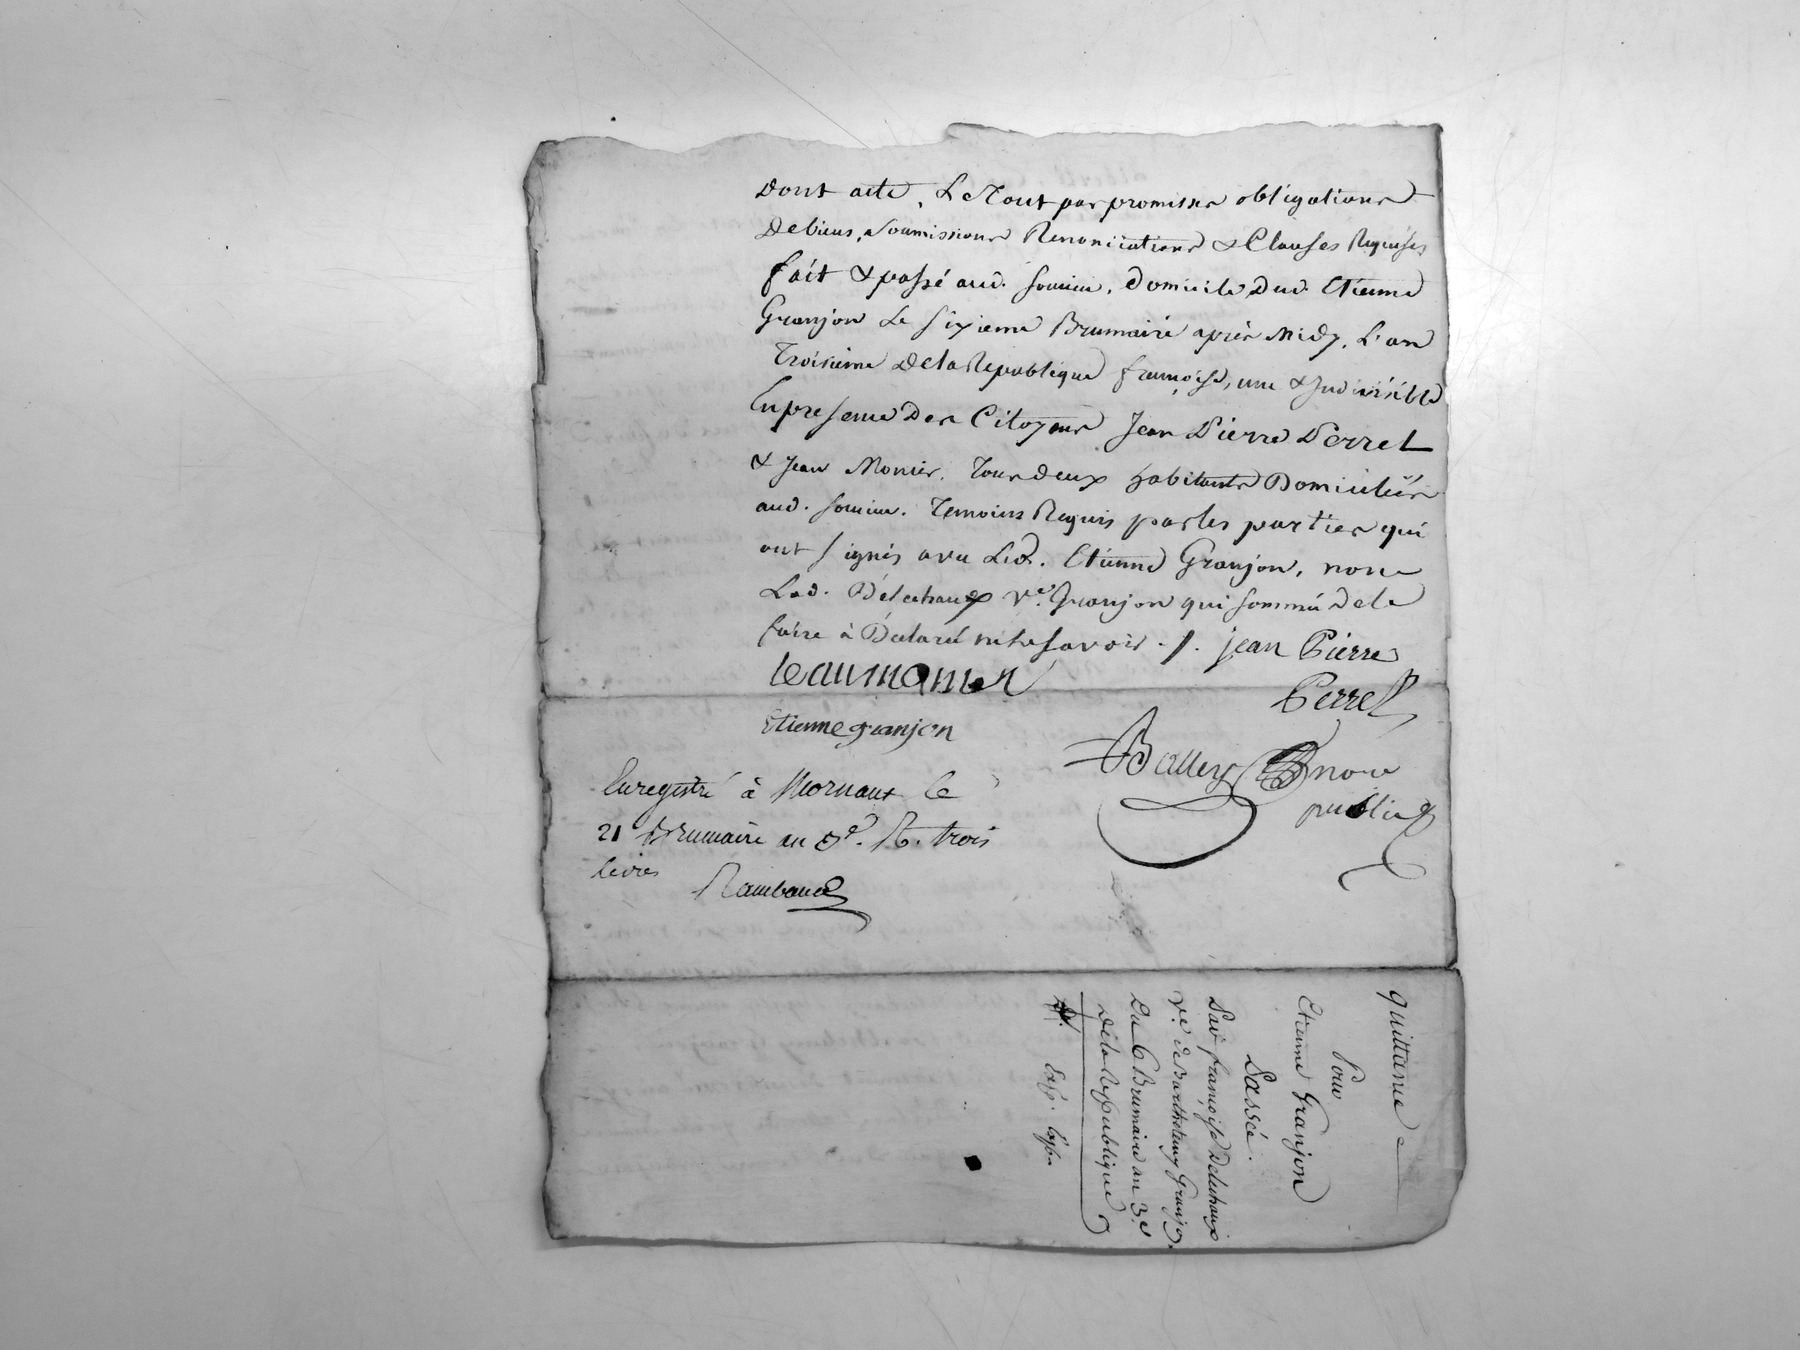 Dont acte, Le Tout par promesses obligations
De biens, soumissions Renonciations & Clauses Requises
fait & passé aud. Soucieu, Domicile Dud. Etienne
Granjon Le sixieme Brumaire après Midy, L'an
Troisieme De la Republique françoise, une & Indivisible
En presence Des Citoyens Jean Pierre Perret
& Jean Monier, Tous deux habitants Domiciliés
aud. Soucieu. Temoins Requis par les parties qui
ont signés avec Led. Etienne Granjon, non
Lad. Delechaux Ve. Granjon qui sommée De le
faire à Déclaré ne le savoir ./. jean Pierre
Perret
Etienne granjon
notre
public
Enregistré à Mornant le
21 Brumaire an 3e. R. trois
livres
Rambaud
quittance
Pour
Etienne Granjon
Passée
Par françoise Delechaux
Ve. de Barthelemy Granjon
Du 6 Brumaire an 3e.
De la Republique